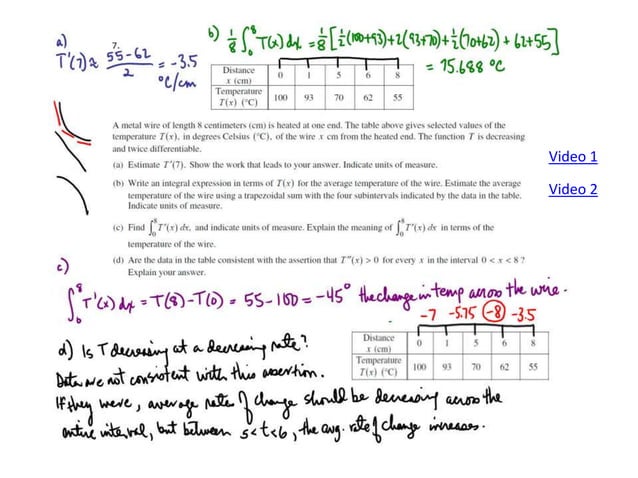 a)
T'(7) ≈ 55-62 / 2 = -3.5 °C/cm
7.
b) 1/8 ∫₀⁸ T(x) dx = 1/8 [ 1/2 (100+93) + 2(93+70) + 1/2 (70+62) + 62+55 ]
= 75.688 °C
Distance x (cm) 0 1 5 6 8
Temperature T(x) (°C) 100 93 70 62 55
A metal wire of length 8 centimeters (cm) is heated at one end. The table above gives selected values of the
temperature T(x), in degrees Celsius (°C), of the wire x cm from the heated end. The function T is decreasing
and twice differentiable.
(a) Estimate T'(7). Show the work that leads to your answer. Indicate units of measure.
(b) Write an integral expression in terms of T(x) for the average temperature of the wire. Estimate the average
temperature of the wire using a trapezoidal sum with the four subintervals indicated by the data in the table.
Indicate units of measure.
(c) Find ∫₀⁸ T'(x) dx, and indicate units of measure. Explain the meaning of ∫₀⁸ T'(x) dx in terms of the
temperature of the wire.
(d) Are the data in the table consistent with the assertion that T''(x) > 0 for every x in the interval 0 < x < 8 ?
Explain your answer.
Video 1
Video 2
c)
∫₀⁸ T'(x) dx = T(8) - T(0) = 55 - 100 = -45° the change in temp across the wire.
-7 -5.75 -8 -3.5
Distance x (cm) 0 1 5 6 8
Temperature T(x) (°C) 100 93 70 62 55
d) Is T decreasing at a decreasing rate?
Data are not consistent with this assertion.
If they were, average rate of change should be decreasing across the
entire interval, but between 5<t<6, the avg. rate of change increases.